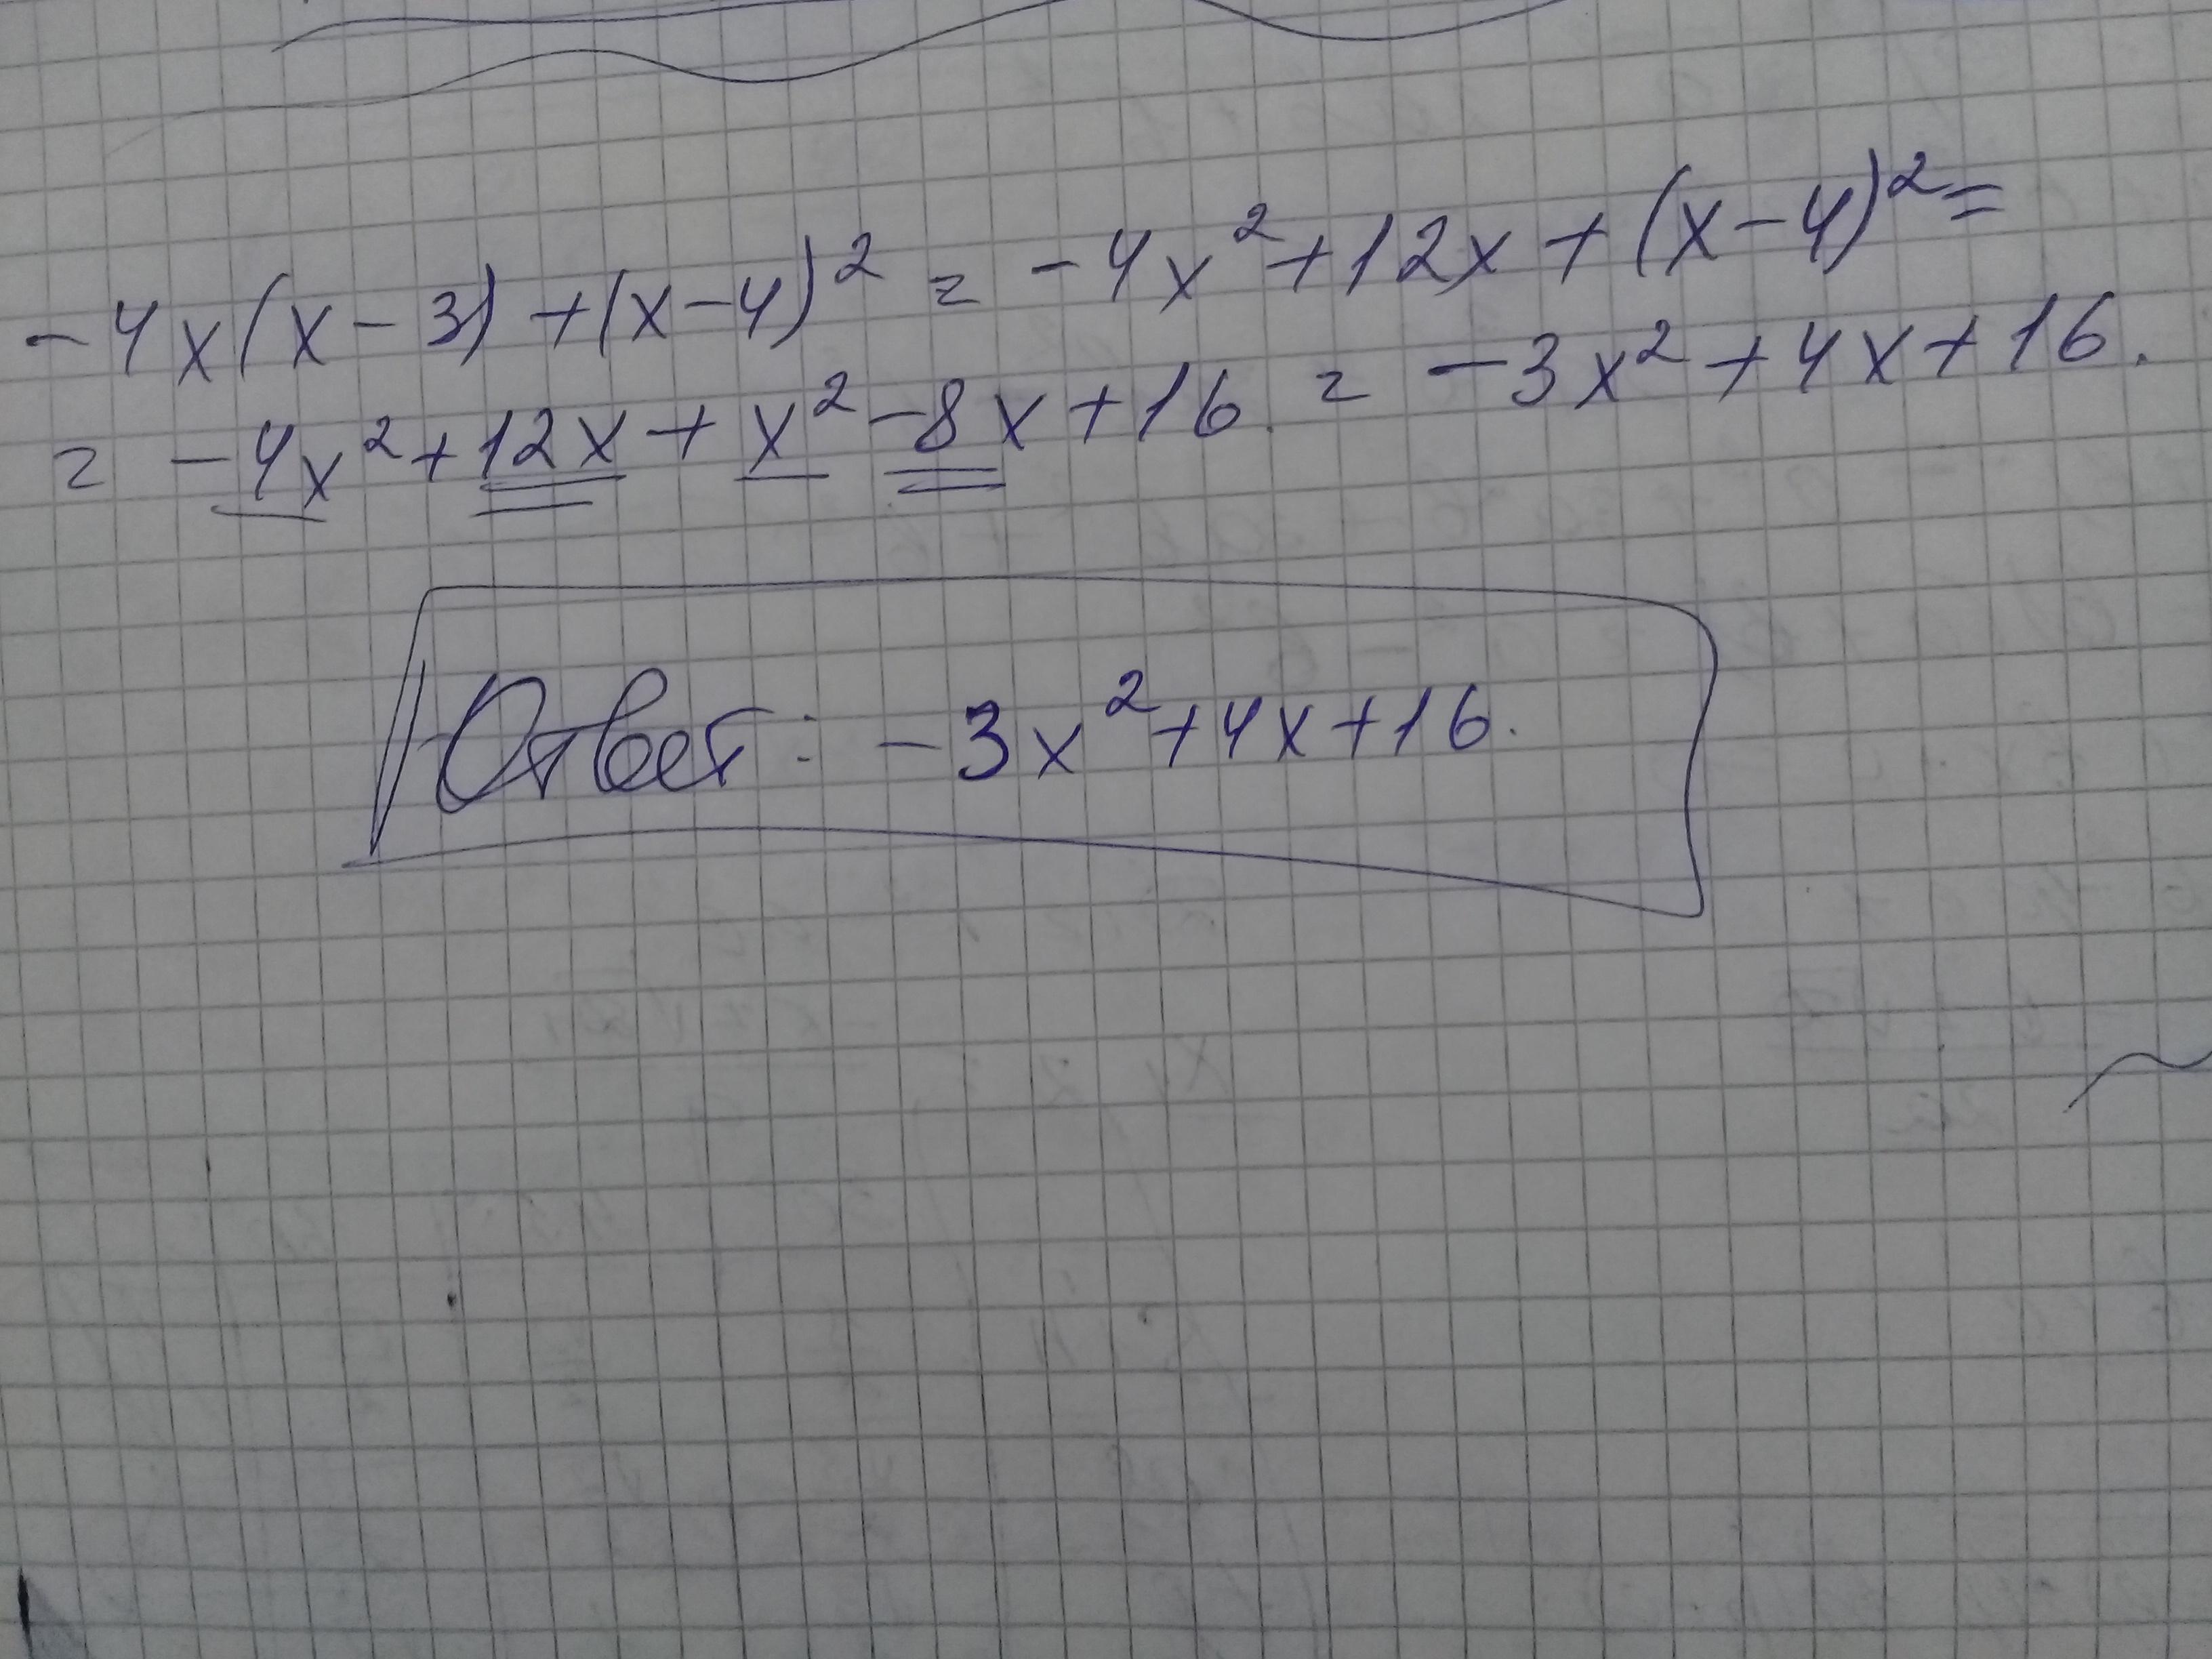 -4x(x-3)+(x-4)² = -4x²+12x+(x-4)²=
= -4x²+12x+x²-8x+16 = -3x²+4x+16.
Ответ: -3x²+4x+16.